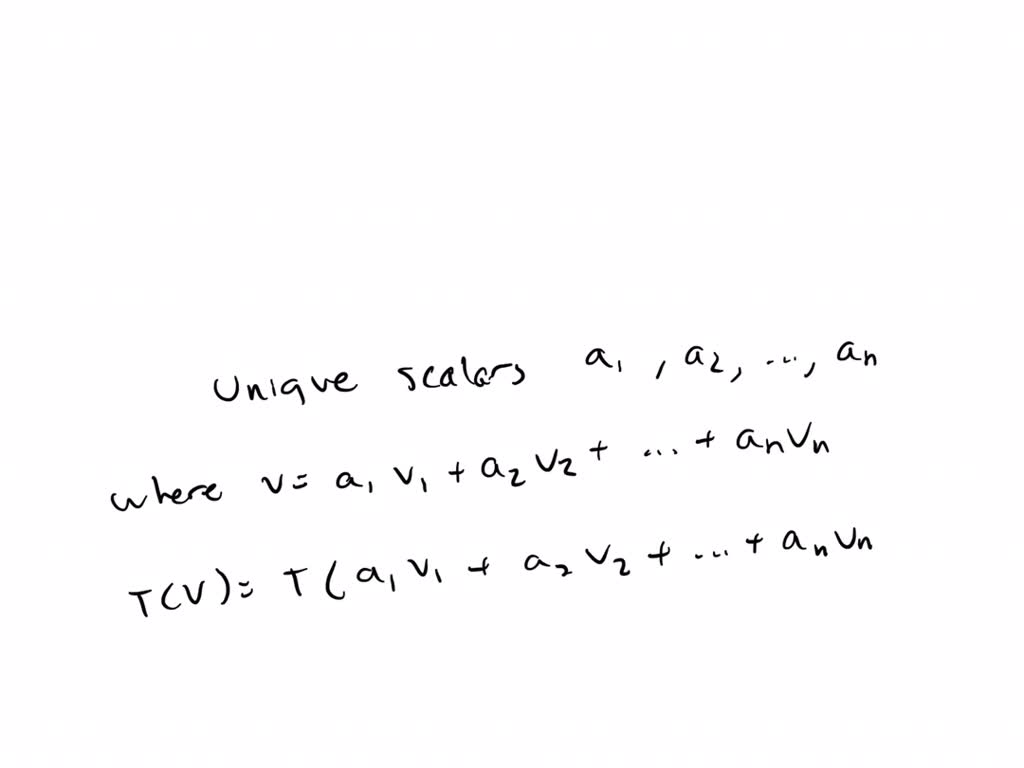 Unique scalars a₁, a₂, ..., aₙ
where v= a₁ v₁ + a₂ v₂ + ... + aₙvₙ
T(v)= T(a₁v₁ + a₂ v₂ + ... + aₙ vₙ